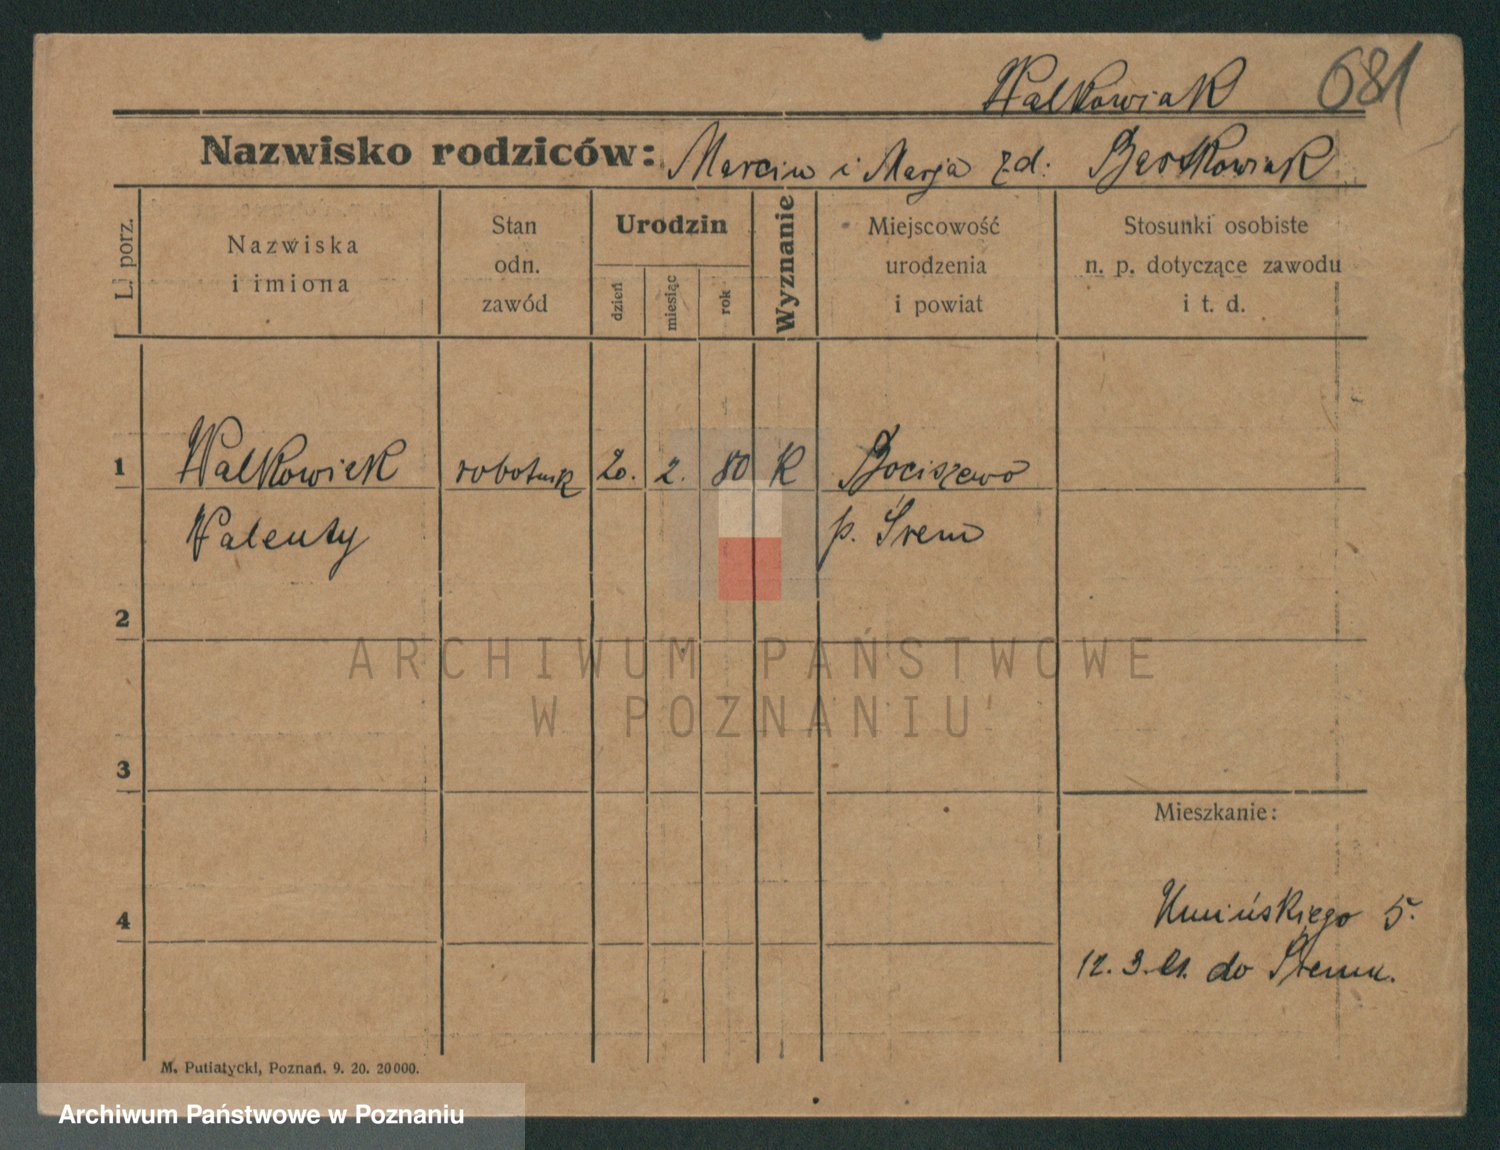 Walkowiak 681
Nazwisko rodziców: Marcin i Marja z d. Bartkowiak
L. porz.
Nazwiska
i imiona
Stan
odn.
zawód
Urodzin
dzień
miesiąc
rok
Wyznanie
Miejscowość
urodzenia
i powiat
Stosunki osobiste
n. p. dotyczące zawodu
i t. d.
1 Walkowiak robotnik 20. 2. 80 K Bociszewo
Walenty p. Śrem
2
3
4
Mieszkanie:
Umińskiego 5.
12. 3. 21. do Śremu.
M. Putiatycki, Poznań. 9. 20. 20000.
ARCHIWUM PAŃSTWOWE
W POZNANIU
Archiwum Państwowe w Poznaniu